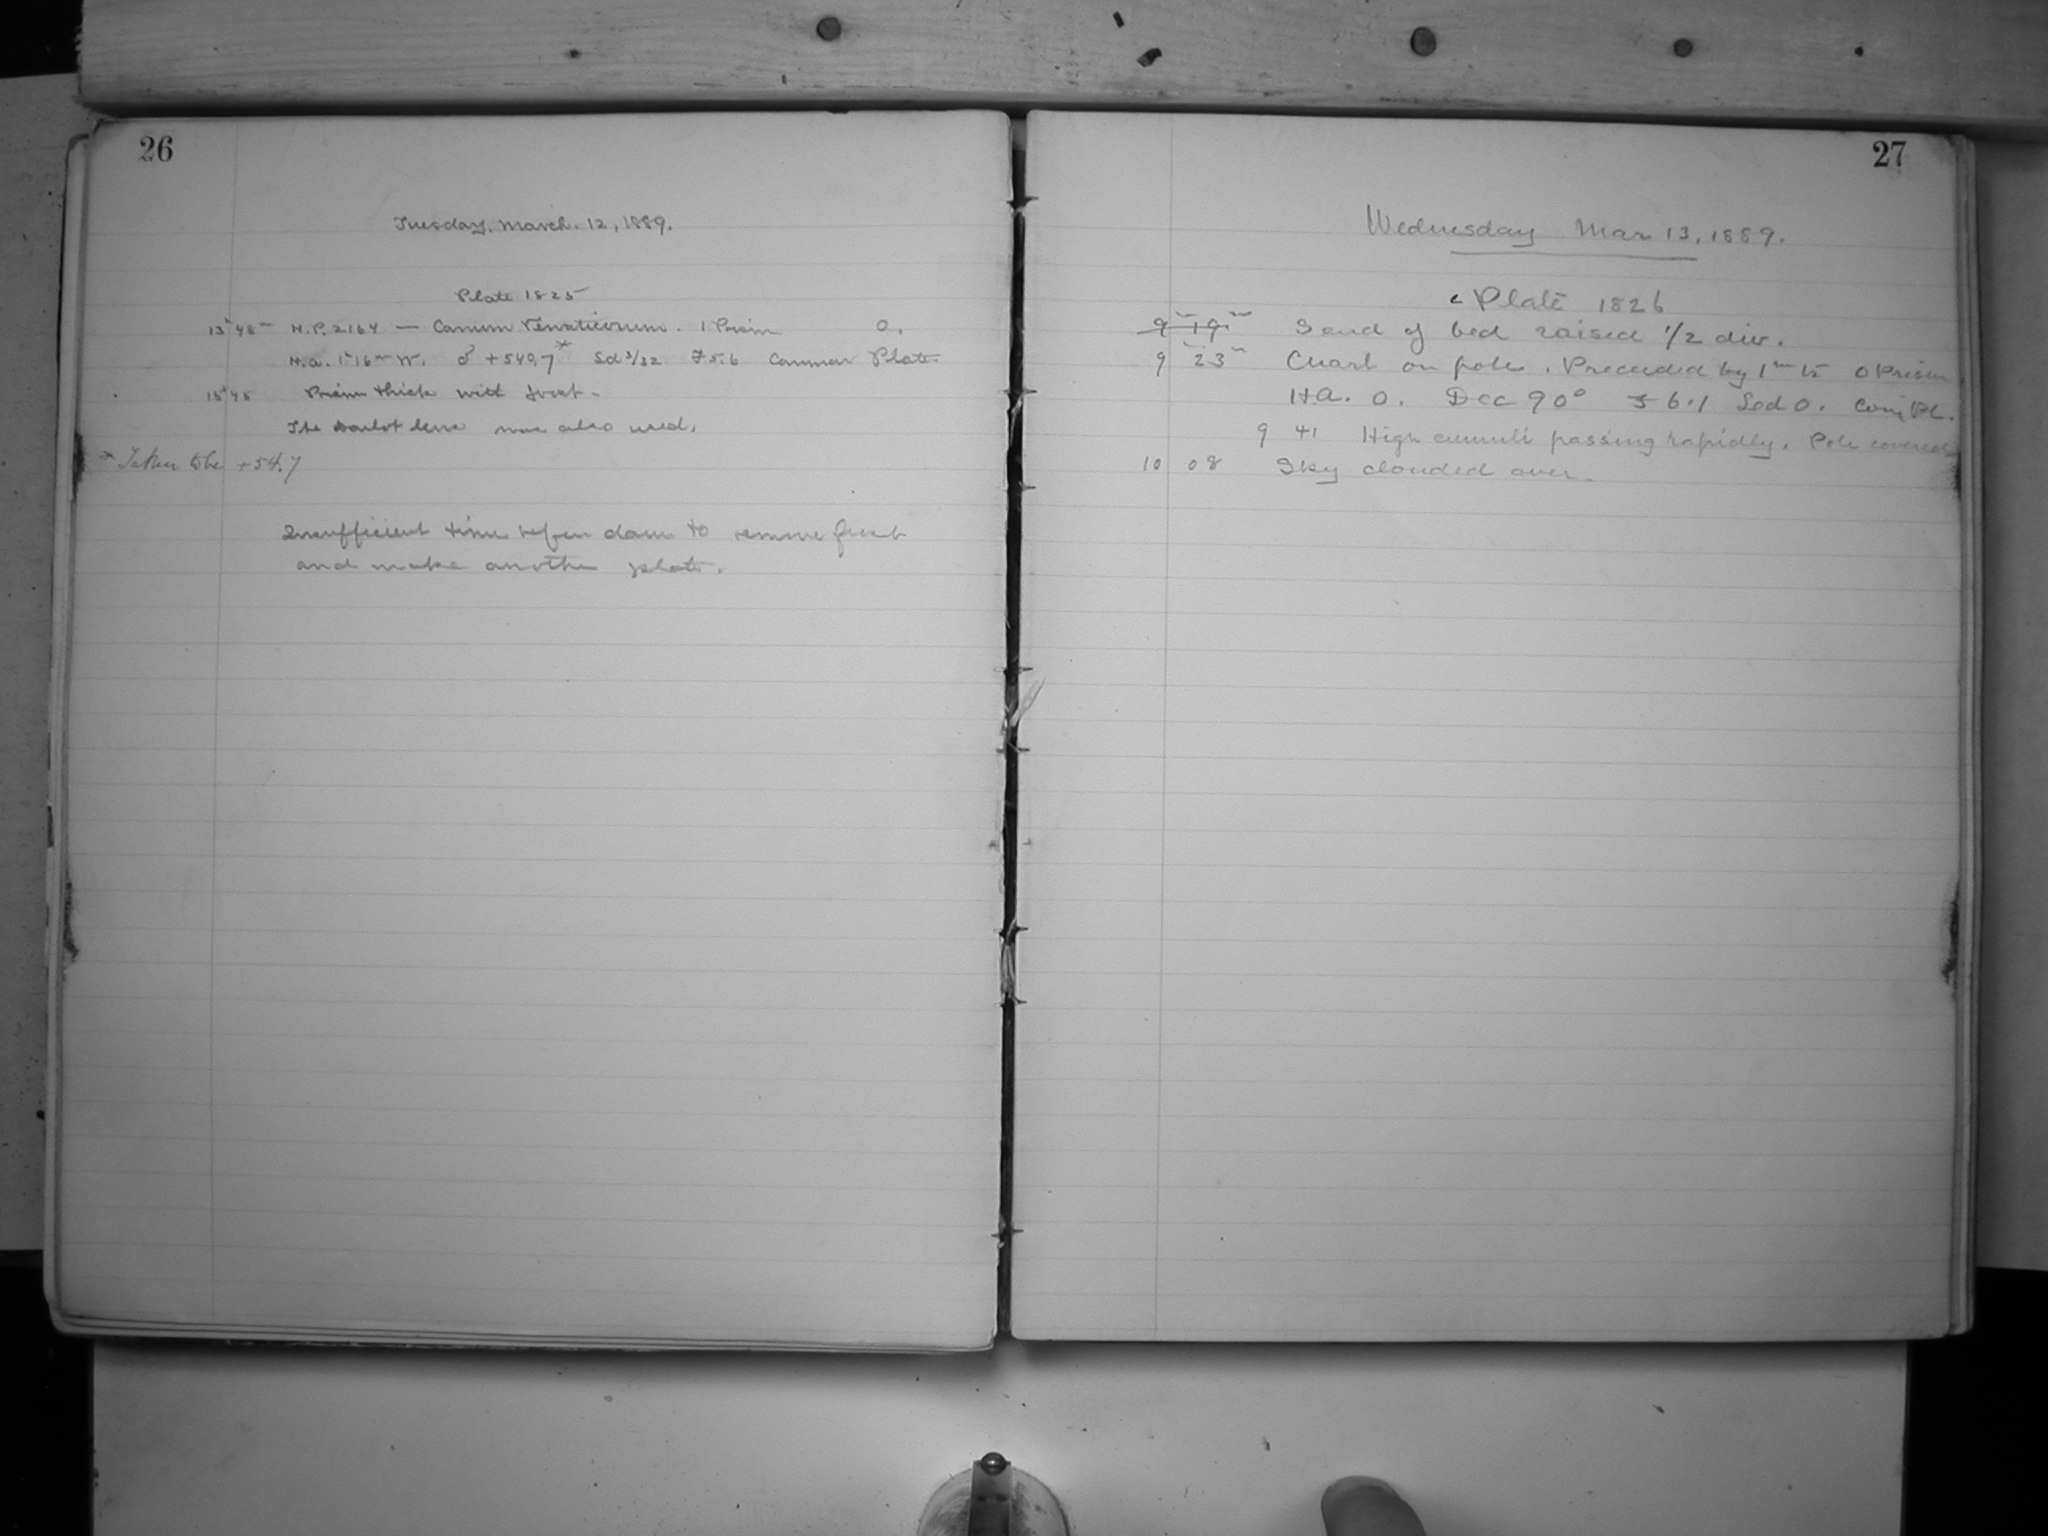 26
Tuesday, March. 12, 1889.
Plate 1825
13h 48m H.P. 2164 — Canum Venaticorum. 1 Prism 0.
H.a. 1h 16m W. δ +540,7* Sd 3/32 F 5.6 Common Plate.
15h 45 Prism thick with frost.
The lens was also used.
* Taken to be +54.7
Insufficient time before dawn to remove frost
and make another plate.
27
Wednesday Mar 13, 1889.
c Plate 1826
9h 19m S end of bed raised 1/2 div.
9h 23m Chart on pole. Preceded by 1m 15 0 Prism
HA. 0. Dec 90° F 6.1 Sed 0. Com. Pl.
9 41 High cumuli passing rapidly. Pole covered
10 08 Sky clouded over.